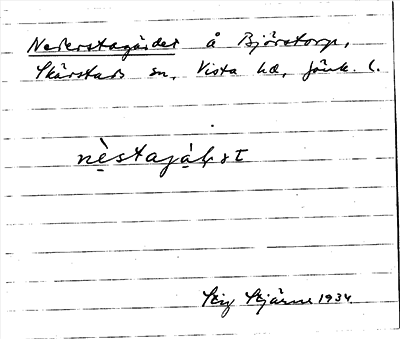 Nederstagärdet å Björstorp,
Skärstads sn, Vista hd, Jönk. l.
Stig Stjärne 1934